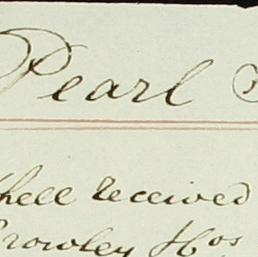 Pearl
hell received
Crowley Hos